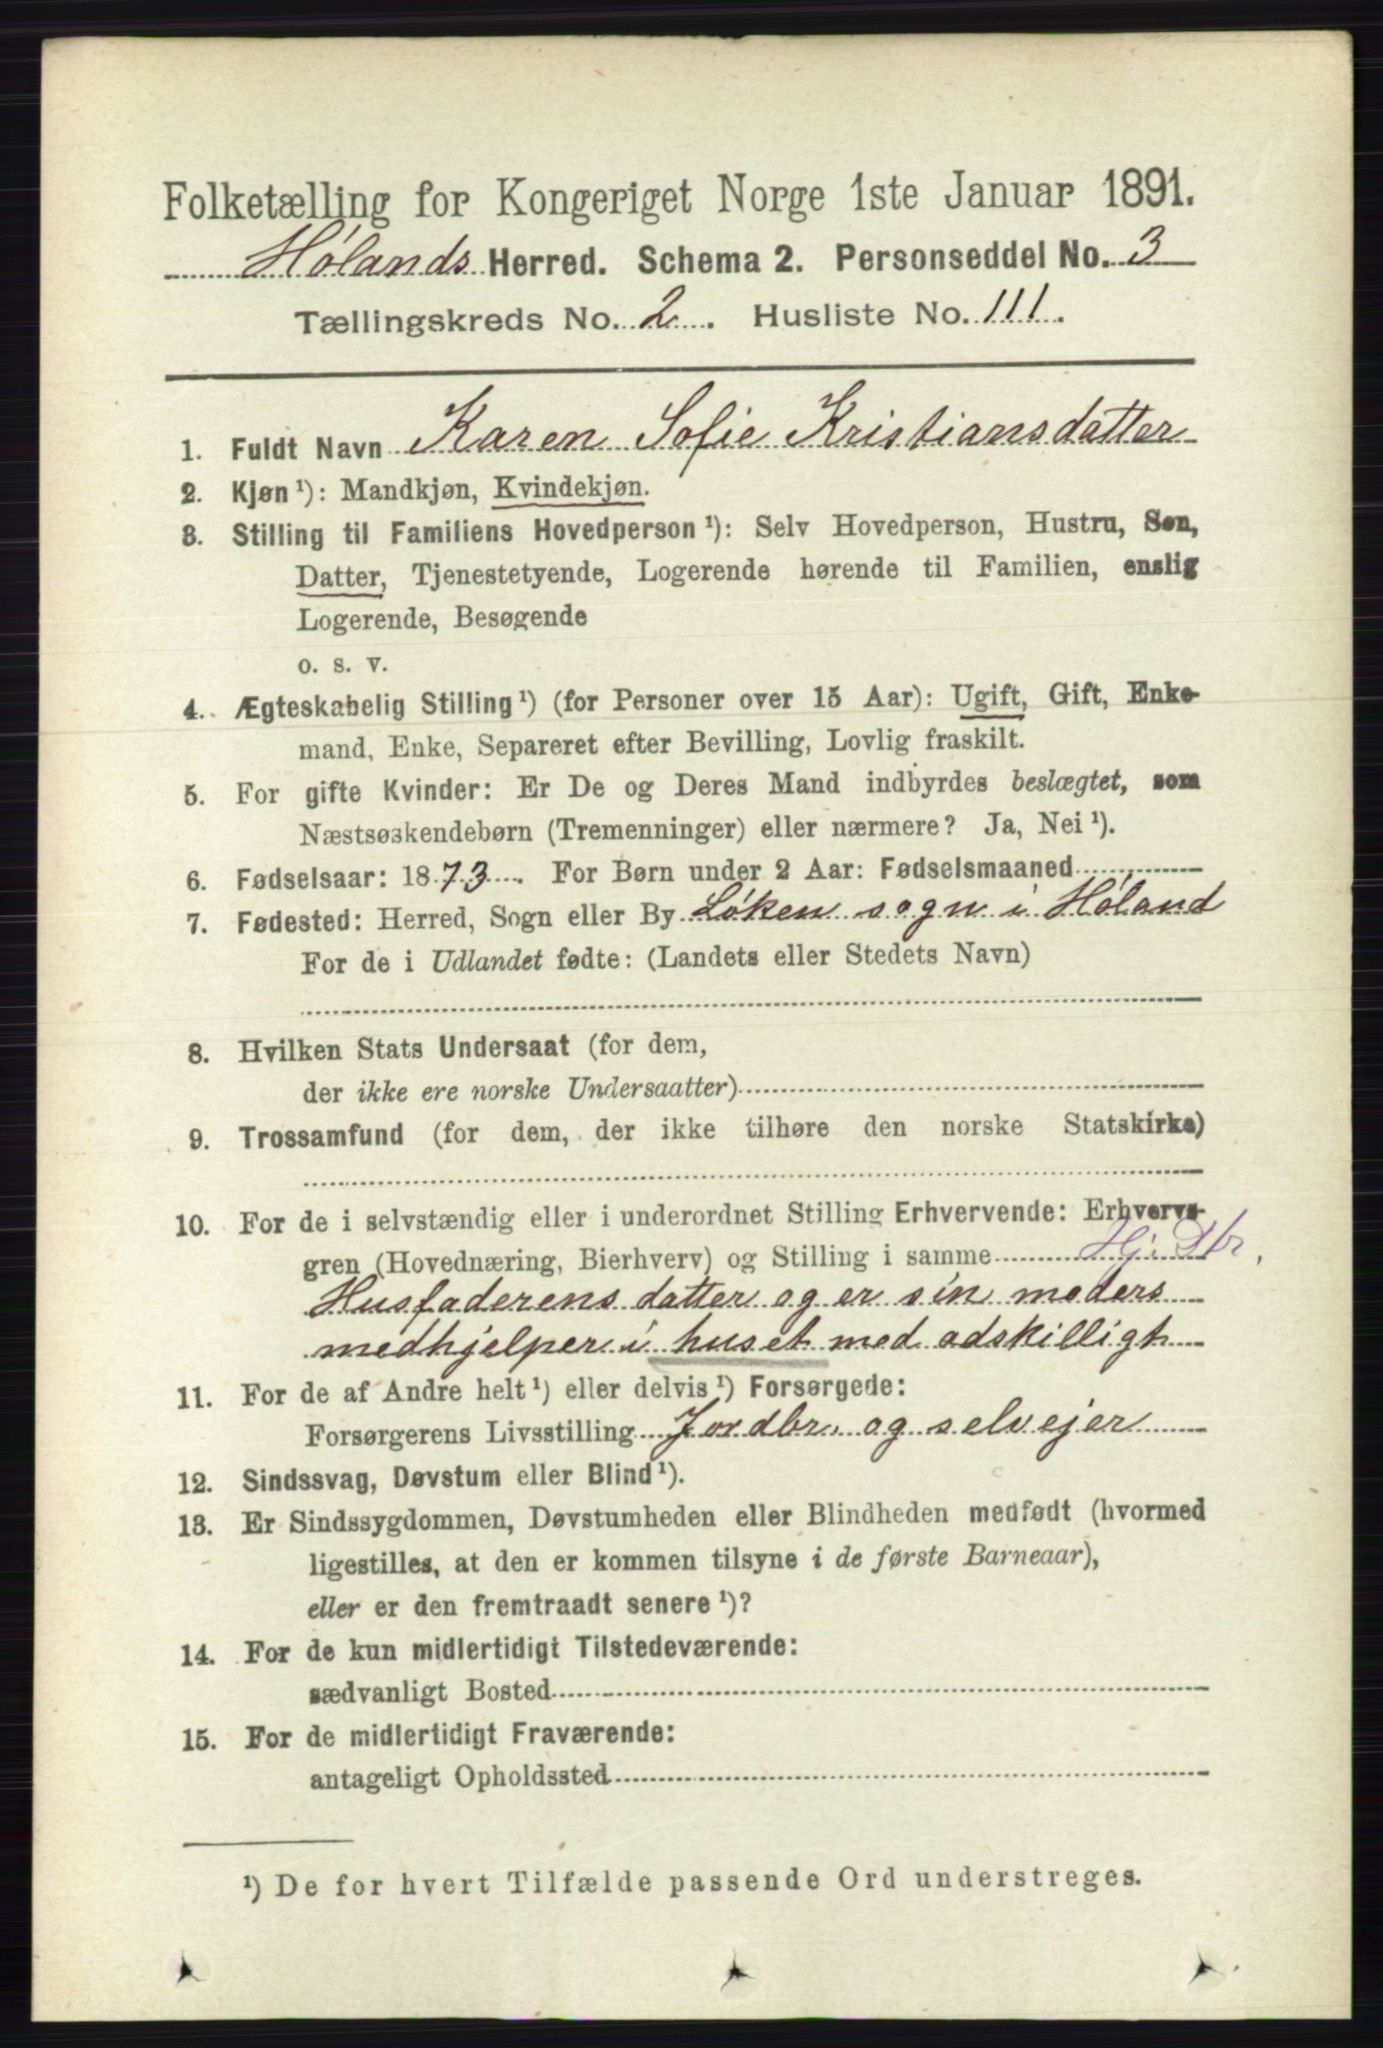 Folketælling for Kongeriget Norge 1ste Januar 1891.
Hølands Herred. Schema 2. Personseddel No. 3
Tællingskreds No. 2. Husliste No. 111.
1. Fuldt Navn Karen Sofie Kristiansdatter
2. Kjøn ¹): Mandkjøn, Kvindekjøn.
3. Stilling til Familiens Hovedperson ¹): Selv Hovedperson, Hustru, Søn,
Datter, Tjenestetyende, Logerende hørende til Familien, enslig
Logerende, Besøgende
o. s. v.
4. Ægteskabelig Stilling ¹) (for Personer over 15 Aar): Ugift, Gift, Enke-
mand, Enke, Separeret efter Bevilling, Lovlig fraskilt.
5. For gifte Kvinder: Er De og Deres Mand indbyrdes beslægtet, som
Næstsøskendebørn (Tremenninger) eller nærmere? Ja, Nei ¹).
6. Fødselsaar: 1873. For Børn under 2 Aar: Fødselsmaaned
7. Fødested: Herred, Sogn eller By Løken sogn i Høland
For de i Udlandet fødte: (Landets eller Stedets Navn)
8. Hvilken Stats Undersaat (for dem,
der ikke ere norske Undersaatter)
9. Trossamfund (for dem, der ikke tilhøre den norske Statskirke)
10. For de i selvstændig eller i underordnet Stilling Erhvervende: Erhvervs-
gren (Hovednæring, Bierhverv) og Stilling i samme Hj. Dtr.
Husfaderens datter og er sin moders
medhjelper i huset med adskilligt
11. For de af Andre helt ¹) eller delvis ¹) Forsørgede:
Forsørgerens Livsstilling Jordbr. og selvejer
12. Sindssvag, Døvstum eller Blind ¹).
13. Er Sindssygdommen, Døvstumheden eller Blindheden medfødt (hvormed
ligestilles, at den er kommen tilsyne i de første Barneaar),
eller er den fremtraadt senere ¹)?
14. For de kun midlertidigt Tilstedeværende:
sædvanligt Bosted
15. For de midlertidigt Fraværende:
antageligt Opholdssted
¹) De for hvert Tilfælde passende Ord understreges.